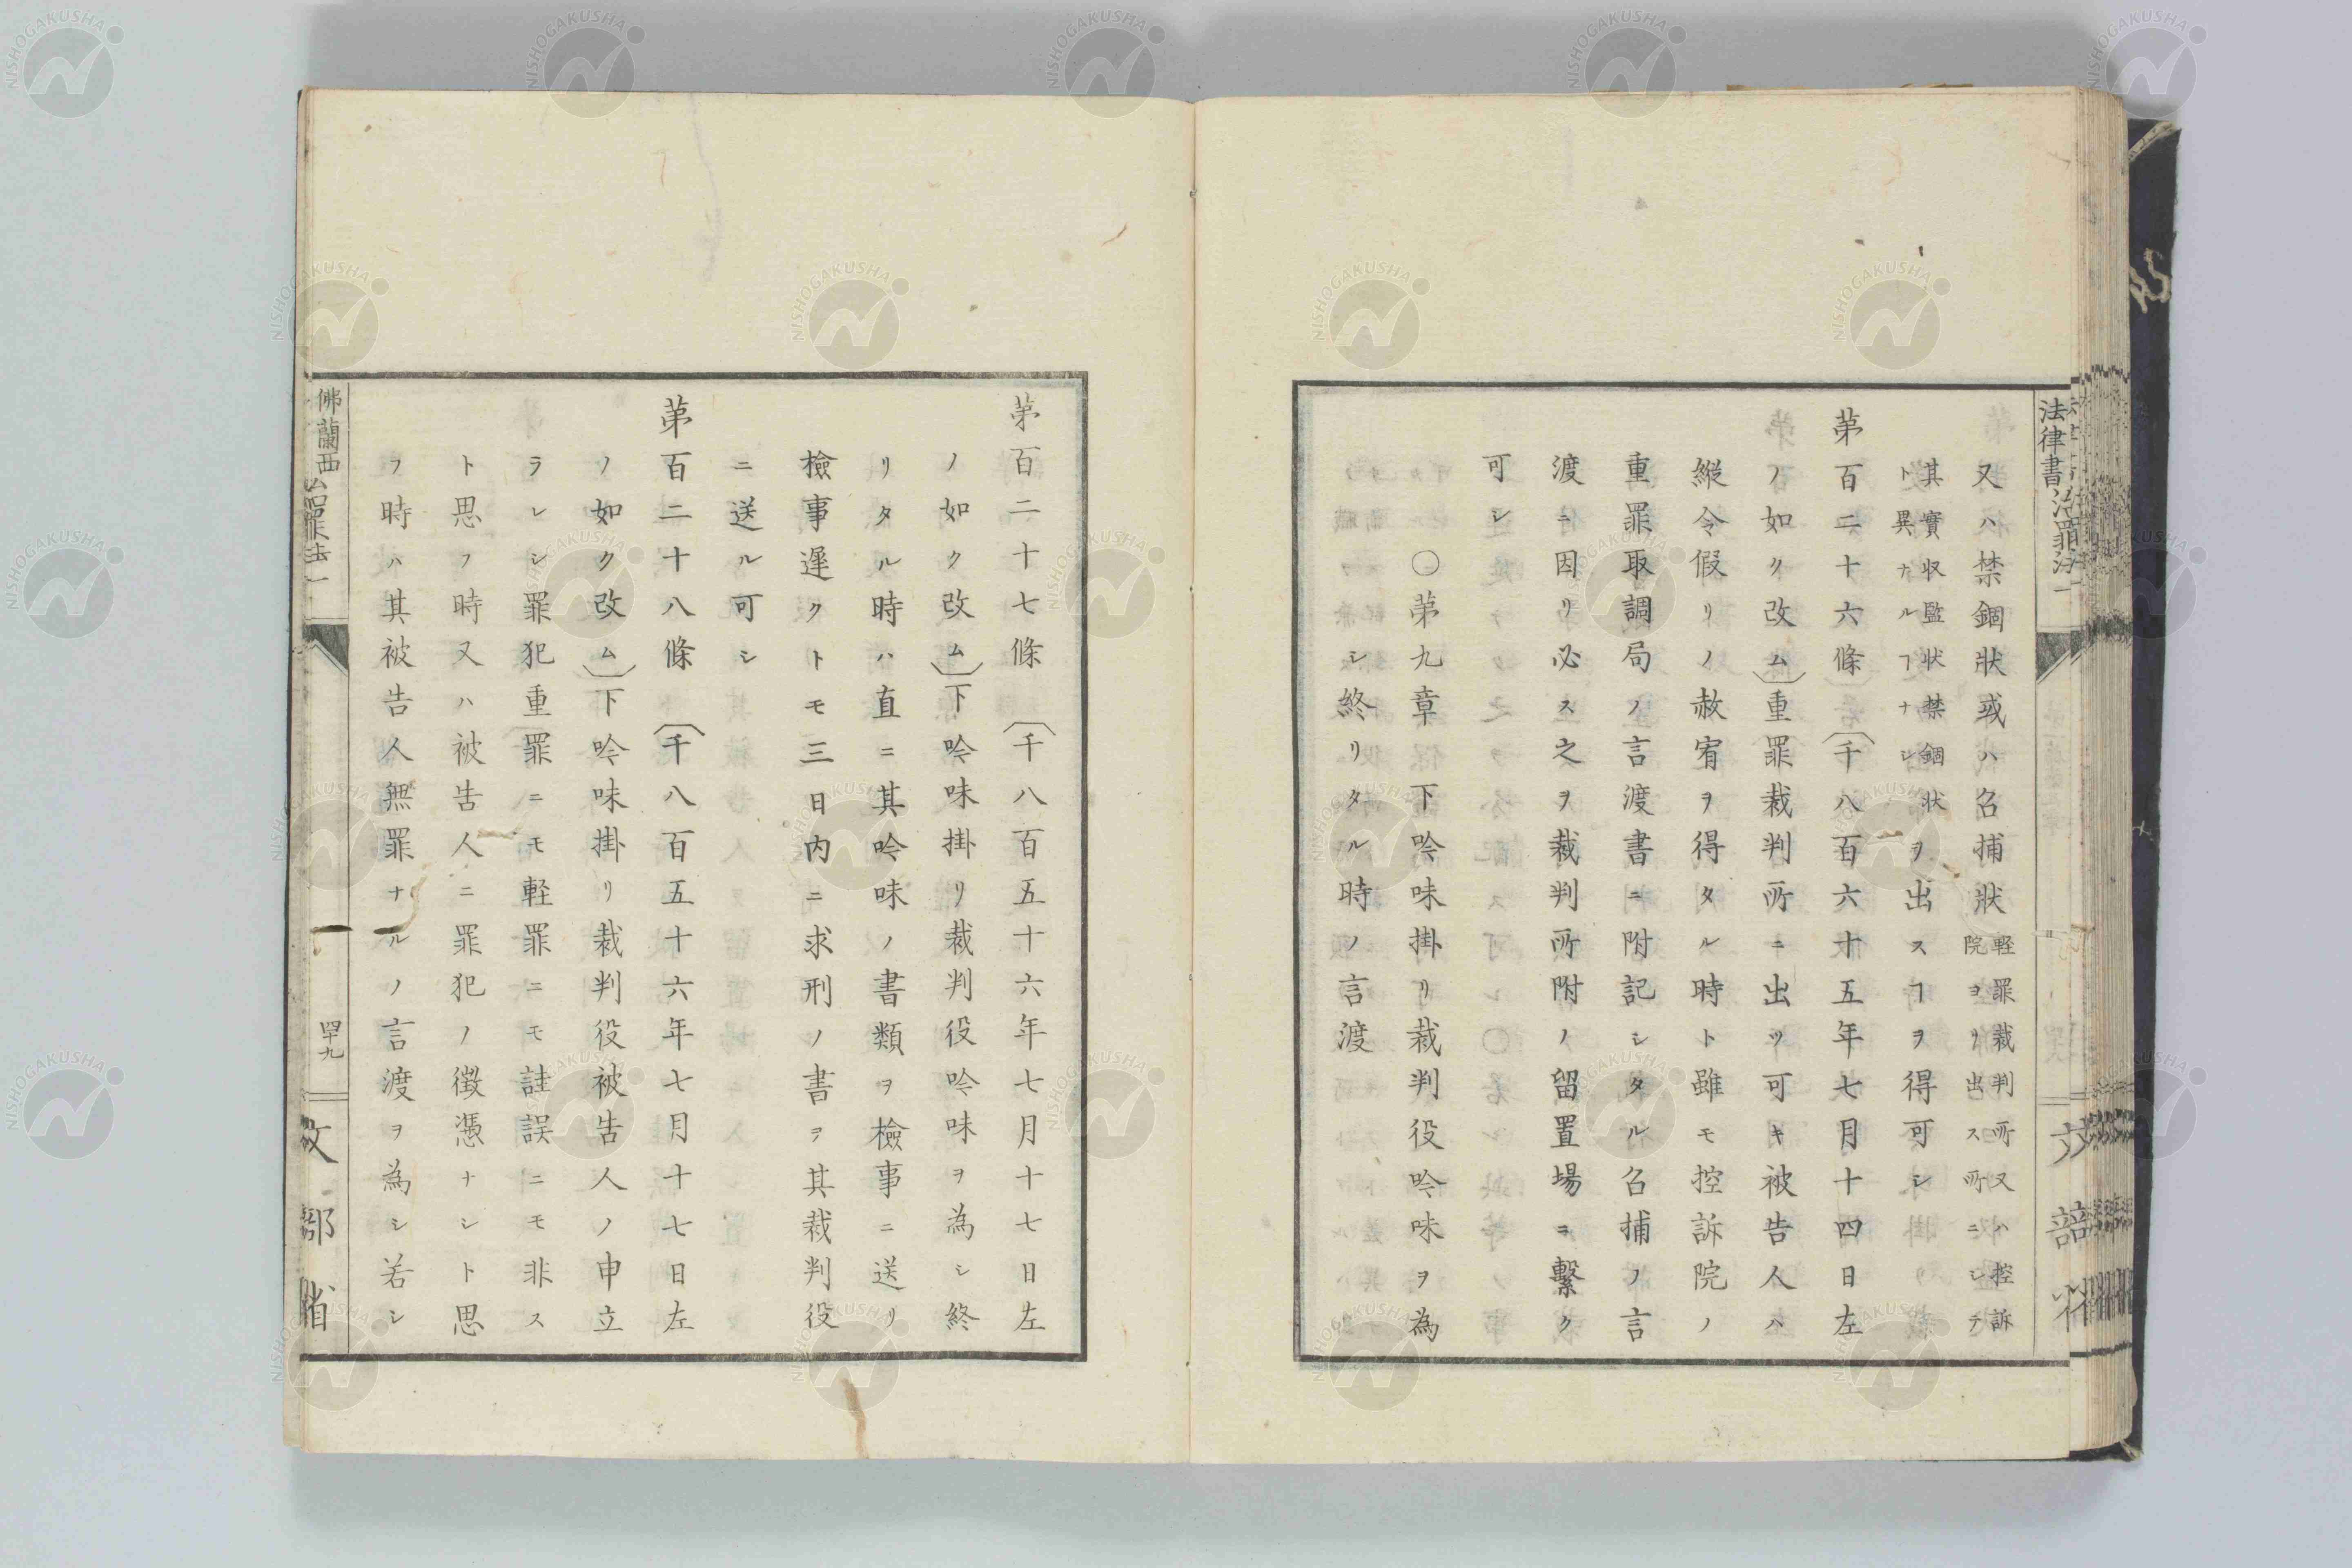 法律書治罪法一
又ハ禁錮狀或ハ召捕狀軽罪裁判所又ハ控訴
院ヨリ出ス所ニシテ
其實収監狀禁錮狀
ト異ナルヿナシヲ出スヿヲ得可シ
第百二十六條〔千八百六十五年七月十四日左
ノ如ク改ム〕重罪裁判所ニ出ツ可キ被告人ハ
縦令假リノ赦宥ヲ得タル時ト雖モ控訴院ノ
重罪取調局ノ言渡書ニ附記シタル召捕ノ言
渡ニ因リ必ス之ヲ裁判所附ノ留置場ニ繋ク
可シ
○第九章 下吟味掛リ裁判役吟味ヲ為
シ終リタル時ノ言渡
第百二十七條 〔千八百五十六年七月十七日左
ノ如ク改ム〕下吟味掛リ裁判役吟味ヲ為シ終
リタル時ハ直ニ其吟味ノ書類ヲ檢事ニ送リ
檢事遅クトモ三日内ニ求刑ノ書ヲ其裁判役
ニ送ル可シ
第百二十八條 〔千八百五十六年七月十七日左
ノ如ク改ム〕下吟味掛リ裁判役被告人ノ申立
ラレシ罪犯重罪ニモ軽罪ニモ註誤ニモ非ス
ト思フ時又ハ被告人ニ罪犯ノ徴憑ナシト思
フ時ハ其被告人無罪ナルノ言渡ヲ為シ若シ
佛蘭西治罪法一
四十九
文部省